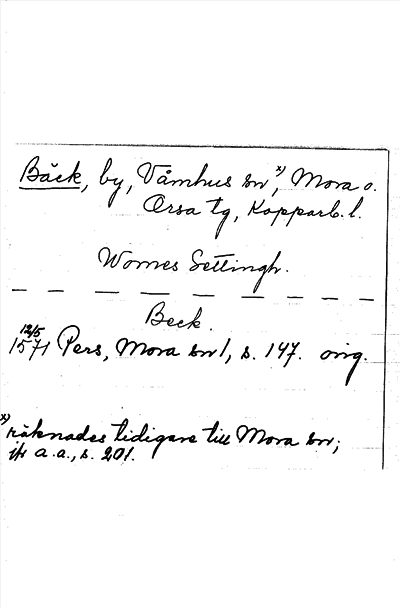 Bäck, by, Våmhus sn x), Mora o.
Orsa tg, Kopparb. l.
Womes Settingh.
Beck.
12/5
1571 Pers, Mora sn 1, s. 147. orig.
x) räknades tidigare till Mora sn;
jfr a.a., s. 201.